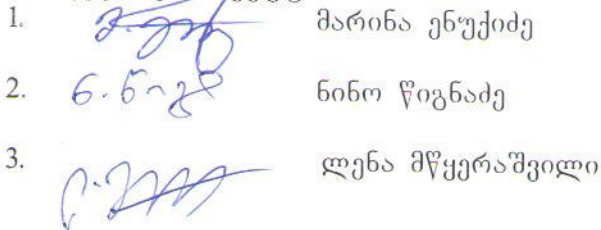 1. მარინა ენუქიძე
2. ნ. წიგნ ნინო წიგნაძე
3. ლენა მწყერაშვილი